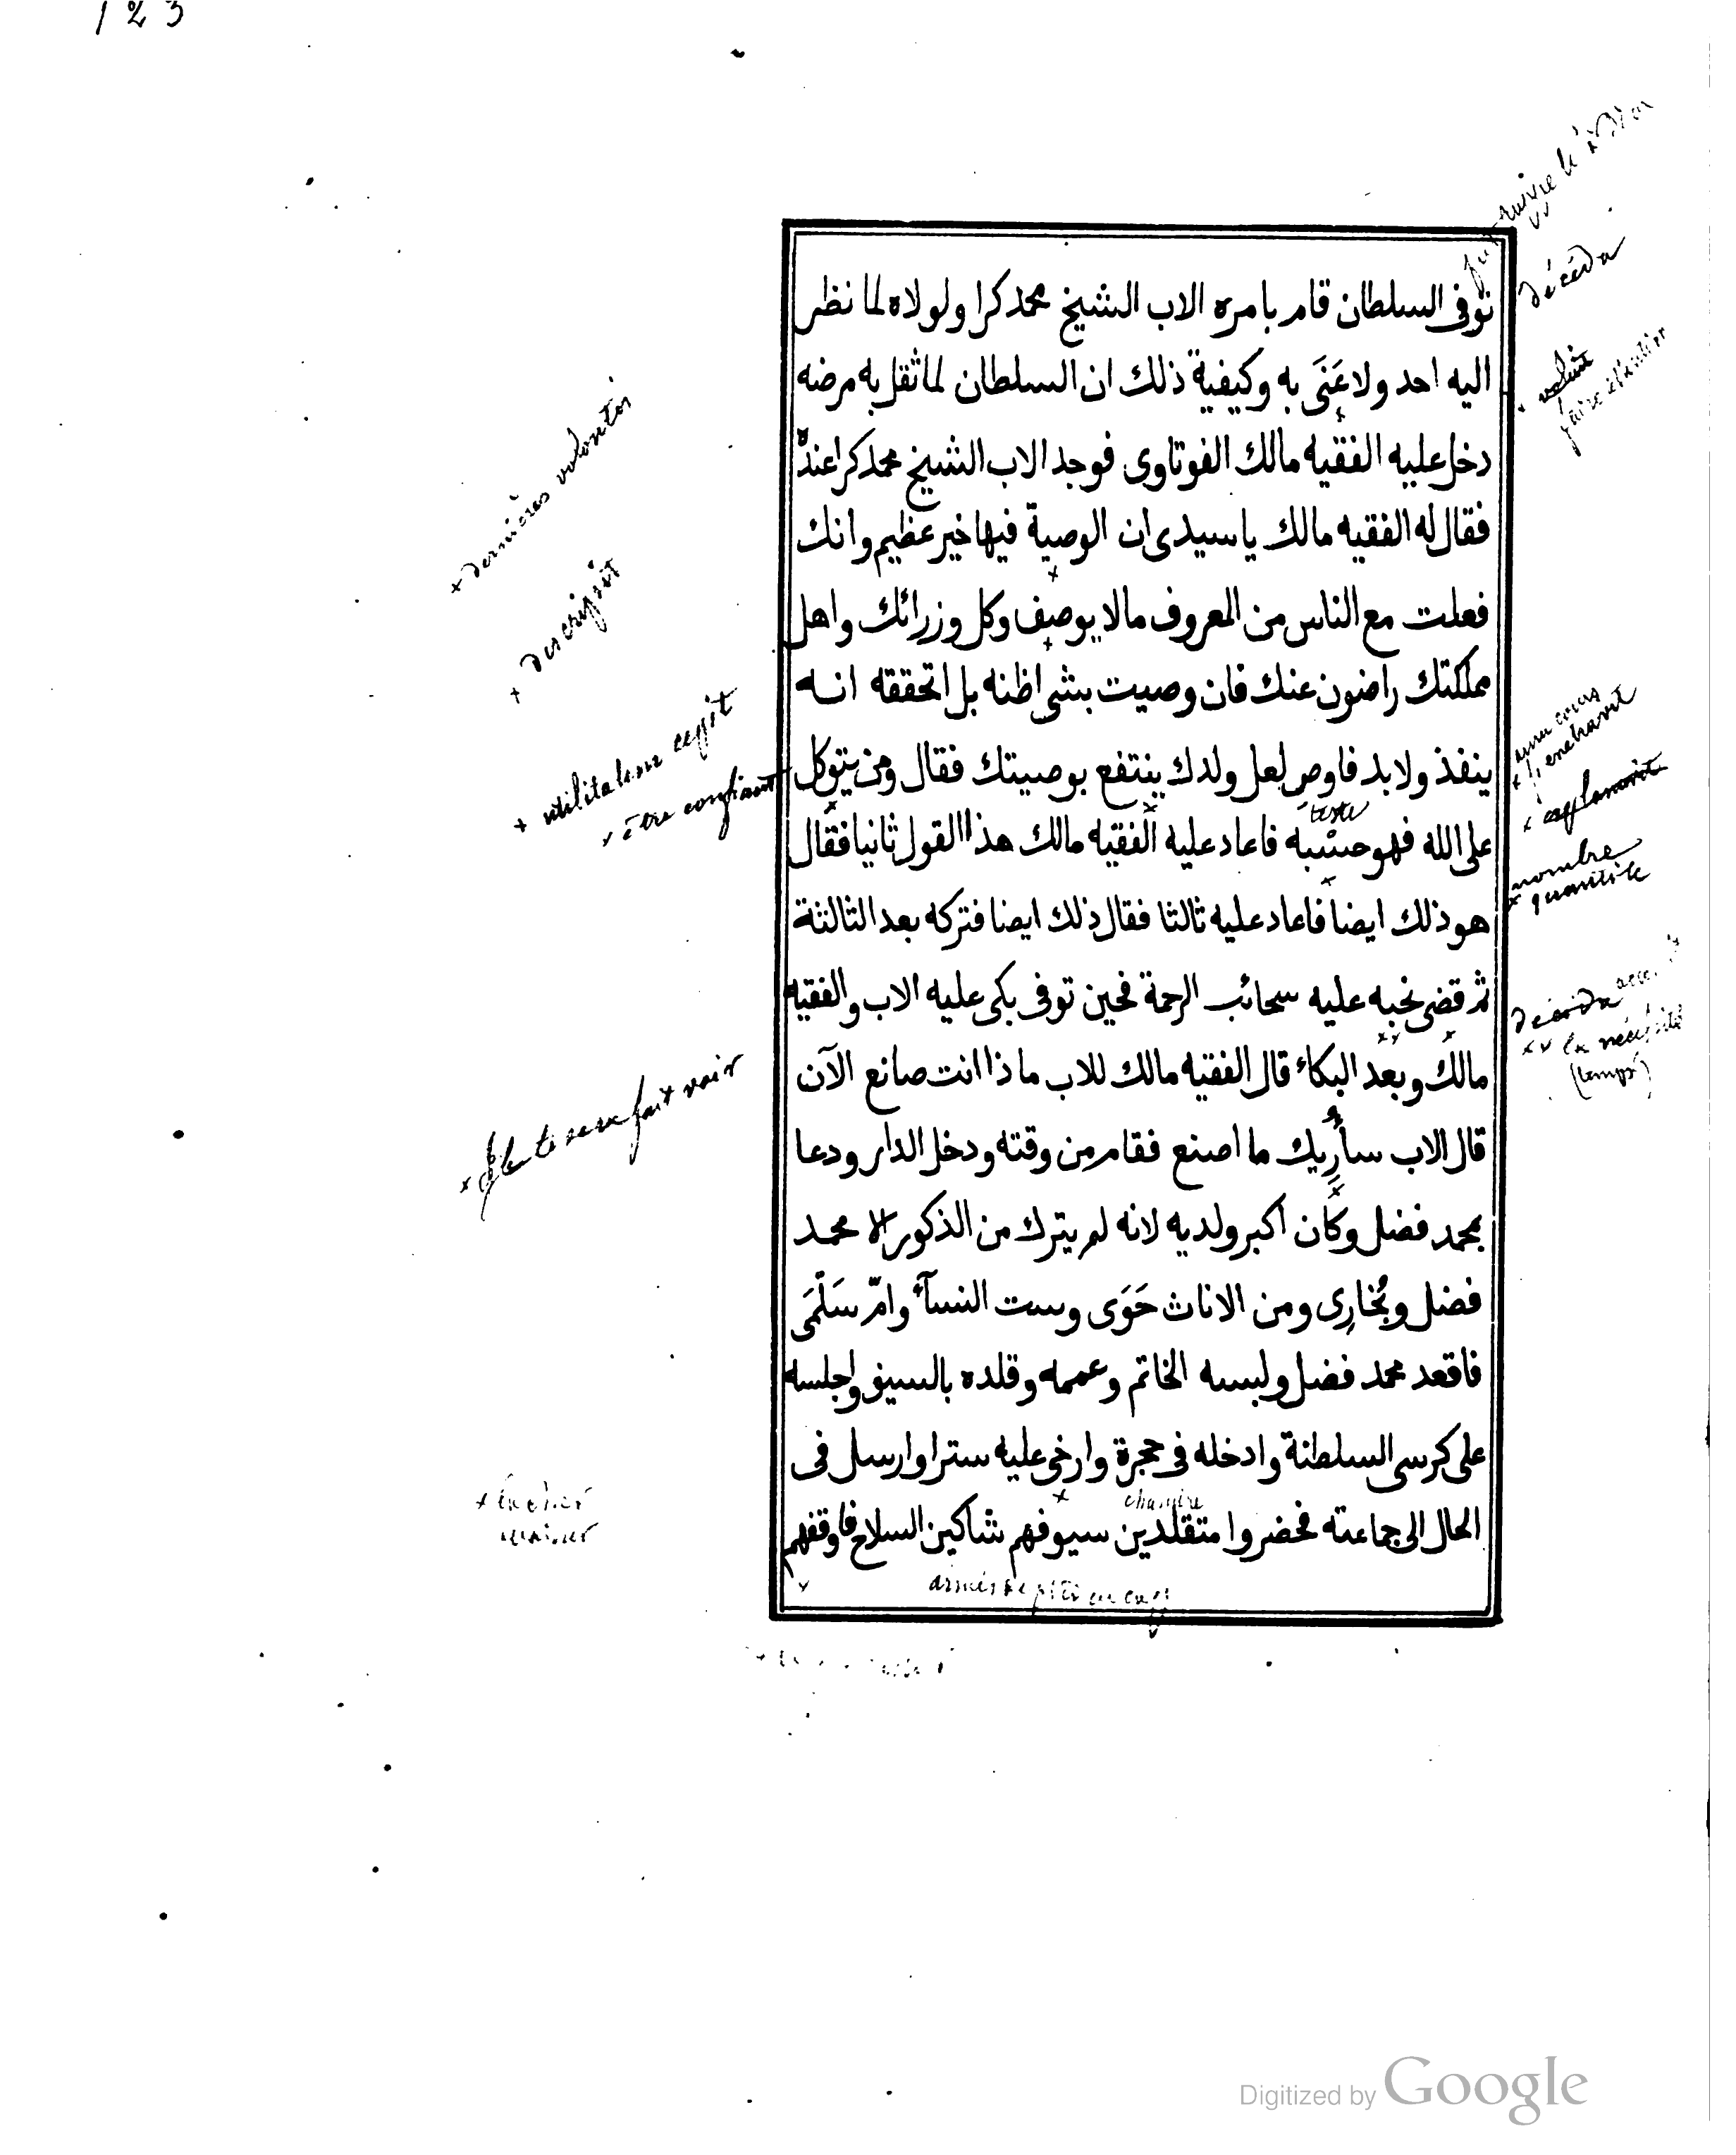 123
توفى السلطان قام بامره الاب الشيخ محمد كرا ولولاه لما نظر
اليه احد ولا عَنَى به وكيفية ذلك ان السلطان لما ثقل به مرضه
دخل عليه الفقيه مالك الفوتاوى فوجد الاب الشيخ محمد كرا عنده
فقال له الفقيه مالك يا سيدى ان الوصية فيها خير عظيم وانك
فعلت مع الناس من المعروف مالا يوصف وكل وزرائك واهل
مملكتك راضون عنك فان وصيت بشى اظنه بل اتحققه انه
ينفذ ولا بد فاوصِ لعل ولدك ينتفع بوصيتك فقال ومن يتوكل
على الله فهو حسْبه فاعاد عليه الفقيه مالك هذا القول ثانيا فقال
هو ذلك ايضا فاعاد عليه ثالثا فقال ذلك ايضا فتركه بعد الثالثة
ثم قضى نحبه عليه سحائب الرحمة فحين توفى بكى عليه الاب والفقيه
مالك وبعد البكاء قال الفقيه مالك للاب ما ذا انت صانع الآن
قال الاب سأُرِيك ما اصنع فقام من وقته ودخل الدار ودعا
بمحمد فضل وكان اكبر ولديه لانه لم يترك من الذكور الا محمد
فضل وبُخارِى ومن الاناث حَوَى وست النسآء وامّ سَلْمَى
فاقعد محمد فضل ولبسه الخاتم وعممه وقلده بالسيف واجلسه
على كرسى السلطنة وادخله فى حجرة وارخى عليه سترا وارسل فى
الحال الى جماعته فحضروا متقلدين سيوفهم شاكين السلاح فاوقفهم
décéda
+ dernières volontés
+ descripsit
+ utilitatem cepit
x être confiant
nombre
x quantité
x x la nécessité
(temps)
fait voir
chambre
Digitized by Google